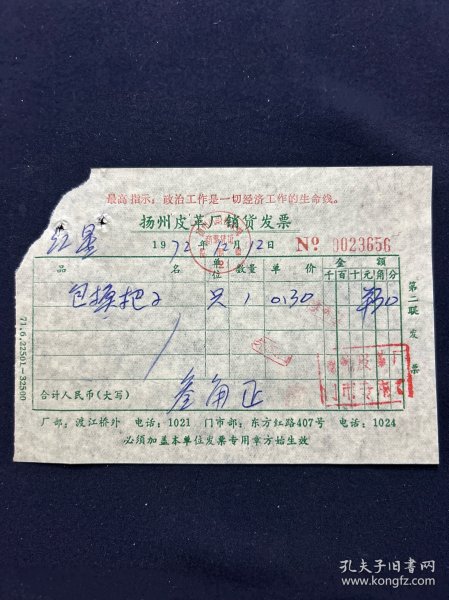 最高指示：政治工作是一切经济工作的生命线。
扬州皮革厂销货发票
红星
1972年12月12日 № 0023656
品 名 单位 数量 单 价 金 额
千 百 十 元 角 分
包换把子 只 1 0.30 30
合计人民币(大写) 叁角正
第二联 发票
71.6.22501-32500
皮革厂
厂部：渡江桥外 电话：1021 门市部：东方红路407号 电话：1024
必须加盖本单位发票专用章方始生效
孔夫子旧书网
www.kongfz.com